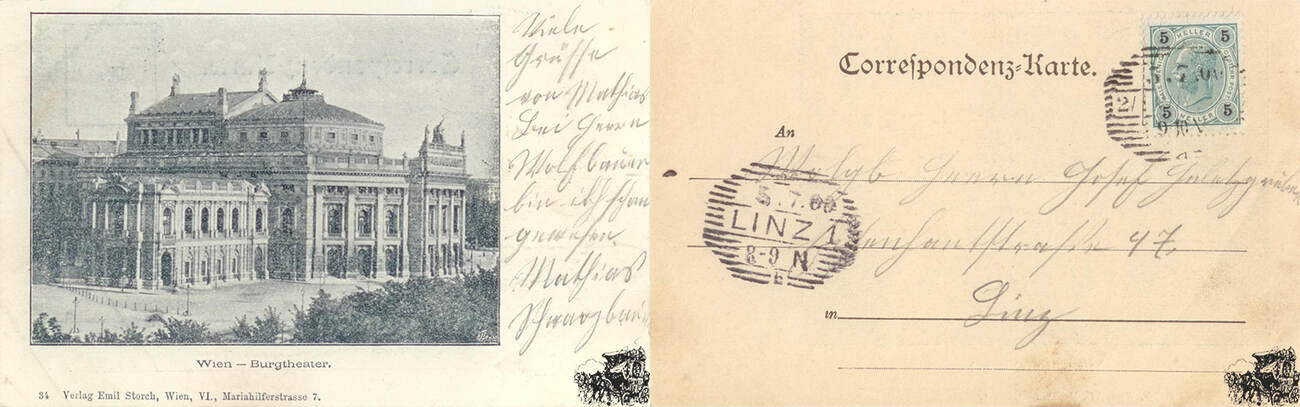 Viele
Grüsse
von Mathias
Bei Herrn
Wolfbauer
bin ich schon
gewesen.
Mathias
Wien – Burgtheater.
34 Verlag Emil Storch, Wien, VI., Mariahilferstrasse 7.
Correſpondenz-Karte.
5 HELLER 5
5 HELLER 5
An
Herrn Josef
47.
in Linz
5.7.00
LINZ 1
8-9 N